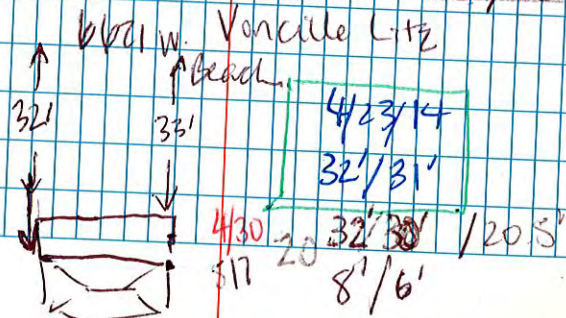 W. Voncille Litz
Beach
32' 33'
4/23/14
32'/31'
4/30 20 32'/30' /20.5'
8'/6'